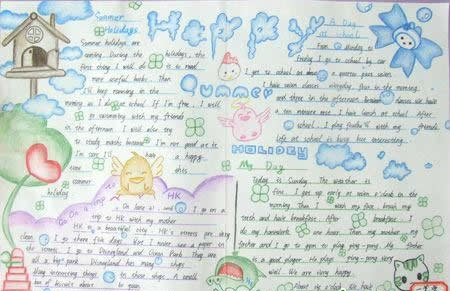 Summer
Holidays
Summer holidays are
coming. During the holidays, the
first thing I will do is to read
more useful books. Then
I'll keep running in the
morning as I do at school. If I'm free, I will
go swimming with my friends
in the afternoon. I will also try
to study maths because I'm not good at it.
I'm sure I'll have a happy
summer
holiday
HAPPY
Summer
HOLIDAY
A Day
at school
From Monday to
Friday I go to school by car
I get to school at a quarter past seven.
I have seven classes everyday, four in the morning,
and three in the afternoon between classes we have
a ten minutes rest. I have lunch at school. After
school, I play with my friends.
Life at school is busy but interesting.
Go On a trip to HK
In June 21 and I go on a
trip to HK with my mother
HK is a beautiful city. HK's streets are very
clean. I go to there five days. But I never see a paper in
the street. I go to Disneyland and Ocean Park. They are
all a big park. Disneyland has many shops
Many interesting things in these shops. A small
box of biscuit about yuan
My Day
Today is Sunday. The weather is
fine. I get up early at seven o'clock in the
morning. Then I wash my face brush my
teeth and have breakfast. After breakfast I
do my homework one hour. Then my mother, my
father and I go to gym to play ping-pong. My father
is a good player. He plays ping-pong very
well. We are very happy.
About six o'clock. We have